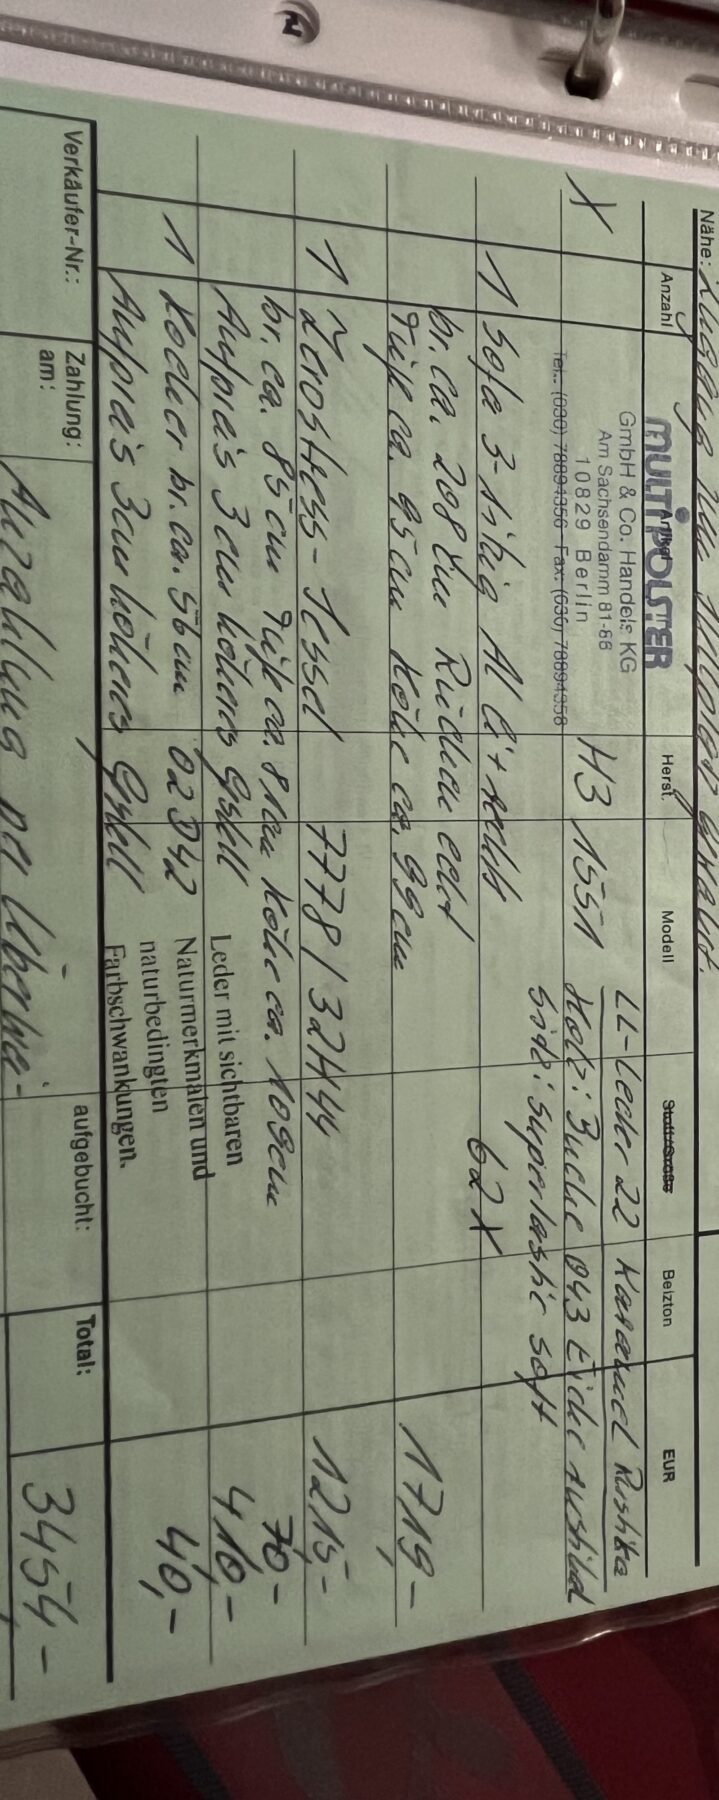 Nähe: Zugang zum
Anzahl Artikel Herst. Modell Stoff/Größe Beizton EUR
MULTIPOLSTER
GmbH & Co. Handels KG
Am Sachsendamm 81-86
10829 Berlin
Tel.: (030) 78894356 Fax: (030) 78894358
LL-Leder 22
X H3 1551 Holz: Buche 043 Eiche
Sitz: Superlastic soft
1 Sofa 3-sitzig Al li + rechts 62 X
br. ca. 208 cm Rücken echt
Tiefe ca. 95 cm Höhe ca. 99 cm 1719,-
1 Zerostress-Sessel 7778 / 32H44 1215,-
br. ca. 85 cm Tiefe ca. 81 cm Höhe ca. 109 cm 70,-
Aufpreis 3 cm höheres Gestell 410,-
1 Hocker br. ca. 56 cm 02D42 40,-
Aufpreis 3 cm höheres Gestell
Leder mit sichtbaren
Naturmerkmalen und
naturbedingten
Farbschwankungen.
Verkäufer-Nr.: Zahlung: am: aufgebucht: Total: 3454,-
Anzahlung per Überwei-